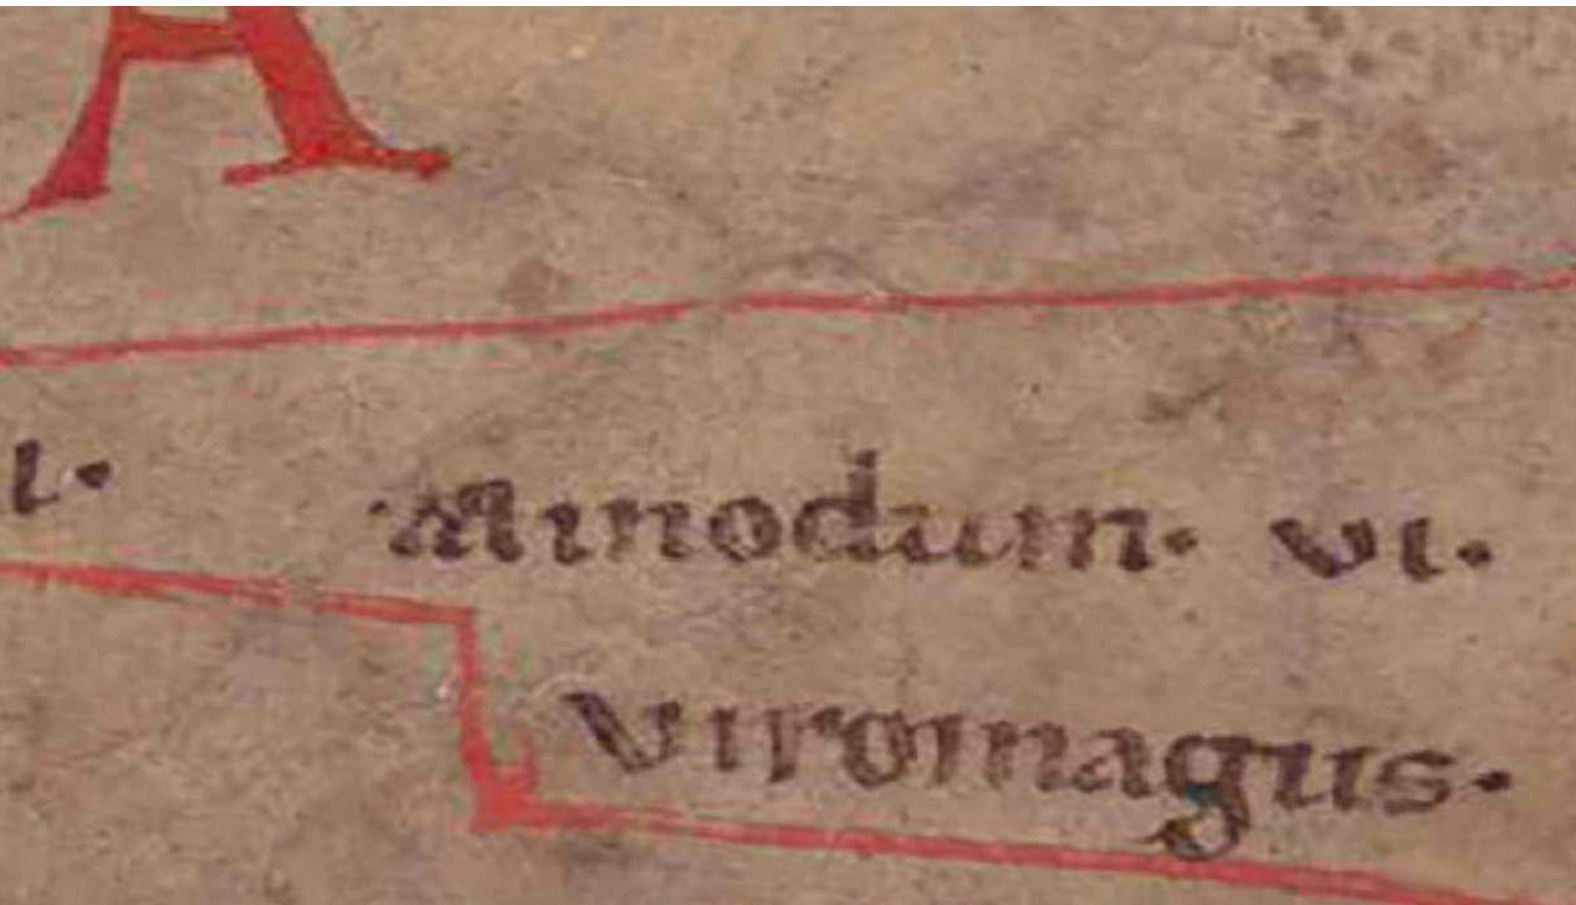 A
l. Minodum. vi.
Viromagus.